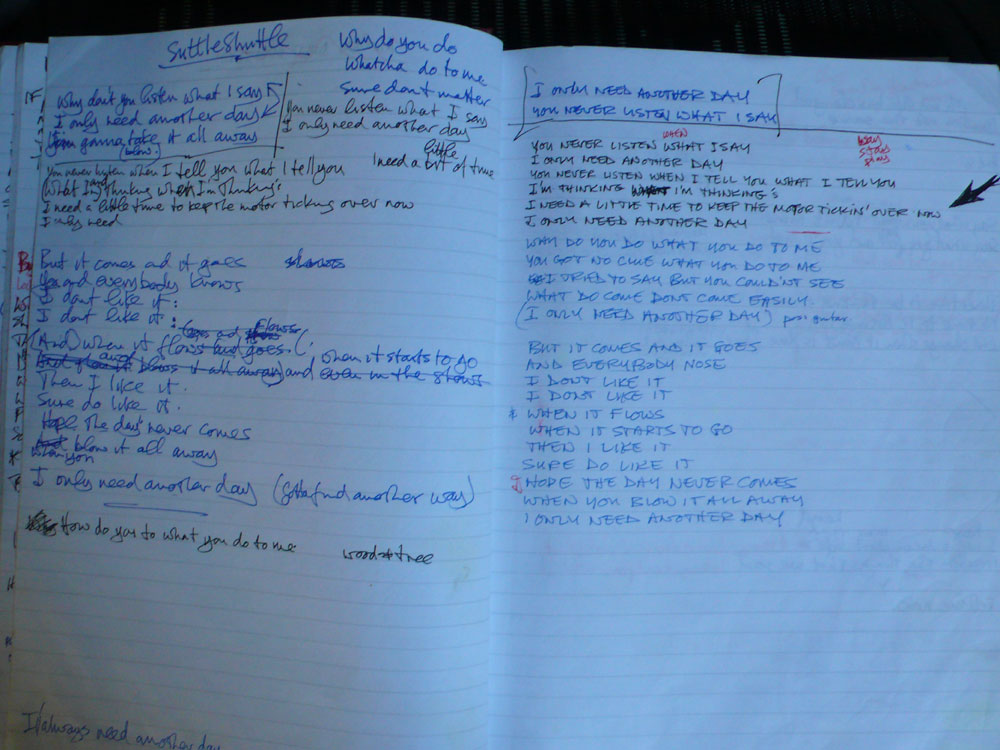 Suttleshuttle
Why do you do
Whatcha do to me
Sure dont matter
Why don't you listen what I say
I only need another day
You gonna take it all away
(blow)
You never listen what I say
I only need another day
little
I need a bit of time
You never listen when I tell you what I tell you
What I'm thinking when I'm thinking's
I need a little time to keep the motor ticking over now
I only need
But it comes and it goes
and everybody knows
I dont like it :
I dont like it :
flows
(And) when it flows and goes (
, when it starts to go
blows it all away and even in the slows
Then I like it.
Sure do like it.
Hope the day never comes
blow it all away
when you
I only need another day (gotta find another way)
How do you to what you do to me
wood tree
I always need another day
I ONLY NEED ANOTHER DAY
YOU NEVER LISTEN WHAT I SAY
WHEN
YOU NEVER LISTEN WHAT I SAY
way
stay
play
I ONLY NEED ANOTHER DAY
YOU NEVER LISTEN WHEN I TELL YOU WHAT I TELL YOU
I'M THINKING WHAT I'M THINKING'S
I NEED A LITTLE TIME TO KEEP THE MOTOR TICKIN' OVER NOW
I ONLY NEED ANOTHER DAY
WHY DO YOU DO WHAT YOU DO TO ME
YOU GOT NO CLUE WHAT YOU DO TO ME
I TRIED TO SAY BUT YOU COULDN'T SEE
WHAT DO COME DONT COME EASILY
(I ONLY NEED ANOTHER DAY) poss guitar
BUT IT COMES AND IT GOES
AND EVERYBODY NOSE
I DONT LIKE IT
I DONT LIKE IT
* WHEN IT FLOWS
WHEN IT STARTS TO GO
THEN I LIKE IT
SURE DO LIKE IT
I HOPE THE DAY NEVER COMES
WHEN YOU BLOW IT ALL AWAY
I ONLY NEED ANOTHER DAY